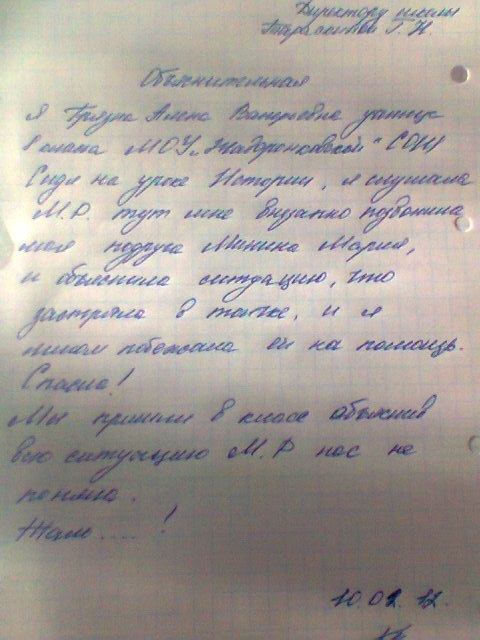 Директору школы
Г. Н.
Объяснительная
Я Алена Валерьевна ученица
8 класса МОУ „ " СОШ
Сидя на уроке Истории, я слушала
М.Р. тут мне внезапно позвонила
моя подруга Минина Мария,
и объяснила ситуацию, что
застряла в толчке, и я
мигом побежала ей на помощь.
Спасла!
Мы пришли в класс объяснив
всю ситуацию М.Р нас не
поняла.
Жаль....!
10.02.12.